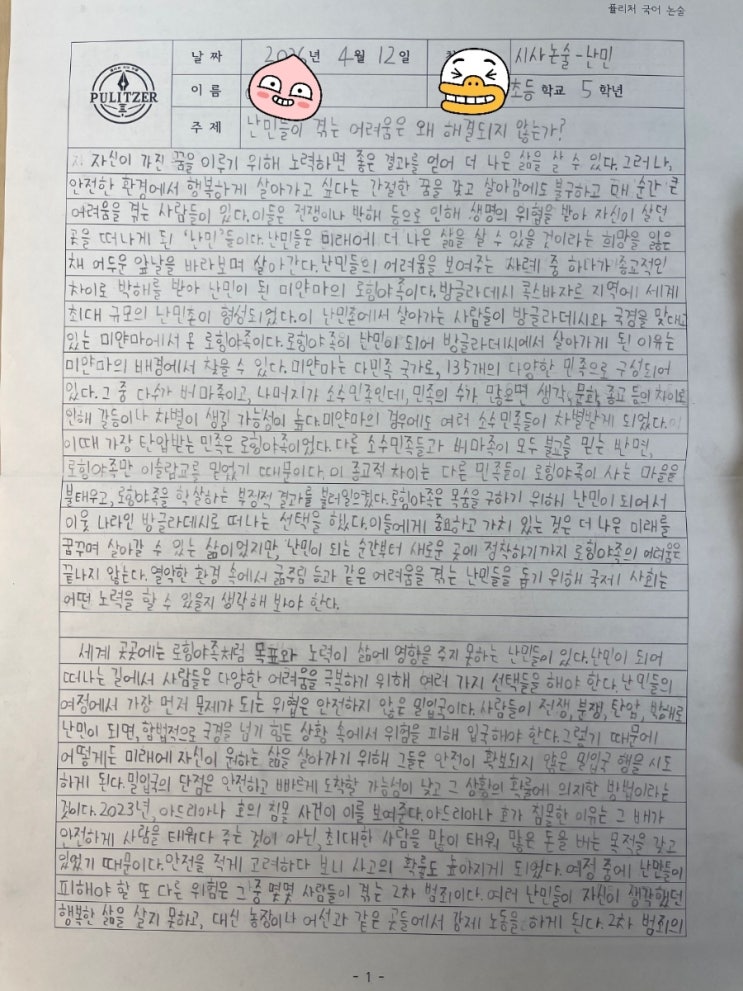 퓰리처 국어 논술
PULITZER
날 짜 2026년 4월 12일 시사논술-난민
이 름 초등 학교 5 학년
주 제 난민들이 겪는 어려움은 왜 해결되지 않는가?
자신이 가진 꿈을 이루기 위해 노력하면 좋은 결과를 얻어 더 나은 삶을 살 수 있다. 그러나,
안전한 환경에서 행복하게 살아가고 싶다는 간절한 꿈을 갖고 살아감에도 불구하고 매 순간 큰
어려움을 겪는 사람들이 있다. 이들은 전쟁이나 박해 등으로 인해 생명의 위협을 받아 자신이 살던
곳을 떠나게 된 '난민'들이다. 난민들은 미래에 더 나은 삶을 살 수 있을 것이라는 희망을 잃은
채 어두운 앞날을 바라보며 살아간다. 난민들의 어려움을 보여주는 사례 중 하나가 종교적인
차이로 박해를 받아 난민이 된 미얀마의 로힝야족이다. 방글라데시 콕스바자르 지역에 세계
최대 규모의 난민촌이 형성되었다. 이 난민촌에서 살아가는 사람들이 방글라데시와 국경을 맞대고
있는 미얀마에서 온 로힝야족이다. 로힝야족이 난민이 되어 방글라데시에서 살아가게 된 이유는
미얀마의 배경에서 찾을 수 있다. 미얀마는 다민족 국가로, 135개의 다양한 민족으로 구성되어
있다. 그 중 다수가 버마족이고, 나머지가 소수민족인데, 민족의 수가 많으면 생각, 문화, 종교 등의 차이로
인해 갈등이나 차별이 생길 가능성이 높다. 미얀마의 경우에도 여러 소수민족들이 차별받게 되었다.
이때 가장 탄압받는 민족은 로힝야족이었다. 다른 소수민족들과 버마족이 모두 불교를 믿는 반면,
로힝야족만 이슬람교를 믿었기 때문이다. 이 종교적 차이는 다른 민족들이 로힝야족이 사는 마을을
불태우고, 로힝야족을 학살하는 부정적 결과를 불러일으켰다. 로힝야족은 목숨을 구하기 위해 난민이 되어서
이웃 나라인 방글라데시로 떠나는 선택을 했다. 이들에게 중요하고 가치 있는 것은 더 나은 미래를
꿈꾸며 살아갈 수 있는 삶이었지만, 난민이 되는 순간부터 새로운 곳에 정착하기까지 로힝야족의 어려움은
끝나지 않는다. 열악한 환경 속에서 굶주림 등과 같은 어려움을 겪는 난민들을 돕기 위해 국제 사회는
어떤 노력을 할 수 있을지 생각해 보아야 한다.
세계 곳곳에는 로힝야족처럼 목표와 노력이 삶에 영향을 주지 못하는 난민들이 있다. 난민이 되어
떠나는 길에서 사람들은 다양한 어려움을 극복하기 위해 여러 가지 선택들을 해야 한다. 난민들의
여정에서 가장 먼저 문제가 되는 위협은 안전하지 않은 밀입국이다. 사람들이 전쟁, 분쟁, 탄압, 박해로
난민이 되면, 합법적으로 국경을 넘기 힘든 상황 속에서 위험을 피해 입국해야 한다. 그렇기 때문에
어떻게든 미래에 자신이 원하는 삶을 살아가기 위해 그들은 안전이 확보되지 않은 밀입국 행을 시도
하게 된다. 밀입국의 단점은 안전하고 빠르게 도착할 가능성이 낮고 그 상황의 확률에 의지한 방법이라는
것이다. 2023년, 아드리아나 호의 침몰 사건이 이를 보여준다. 아드리아나 호가 침몰한 이유는 그 배가
안전하게 사람을 태워다 주는 것이 아닌, 최대한 사람을 많이 태워 많은 돈을 버는 목적을 갖고
있었기 때문이다. 안전을 적게 고려하다 보니 사고의 확률도 높아지게 되었다. 여정 중에 난민들이
피해야 할 또 다른 위험은 그 중 몇몇 사람들이 겪는 2차 범죄이다. 여러 난민들이 자신이 생각했던
행복한 삶을 살지 못하고, 대신 농장이나 어선과 같은 곳들에서 강제 노동을 하게 된다. 2차 범죄의
- 1 -